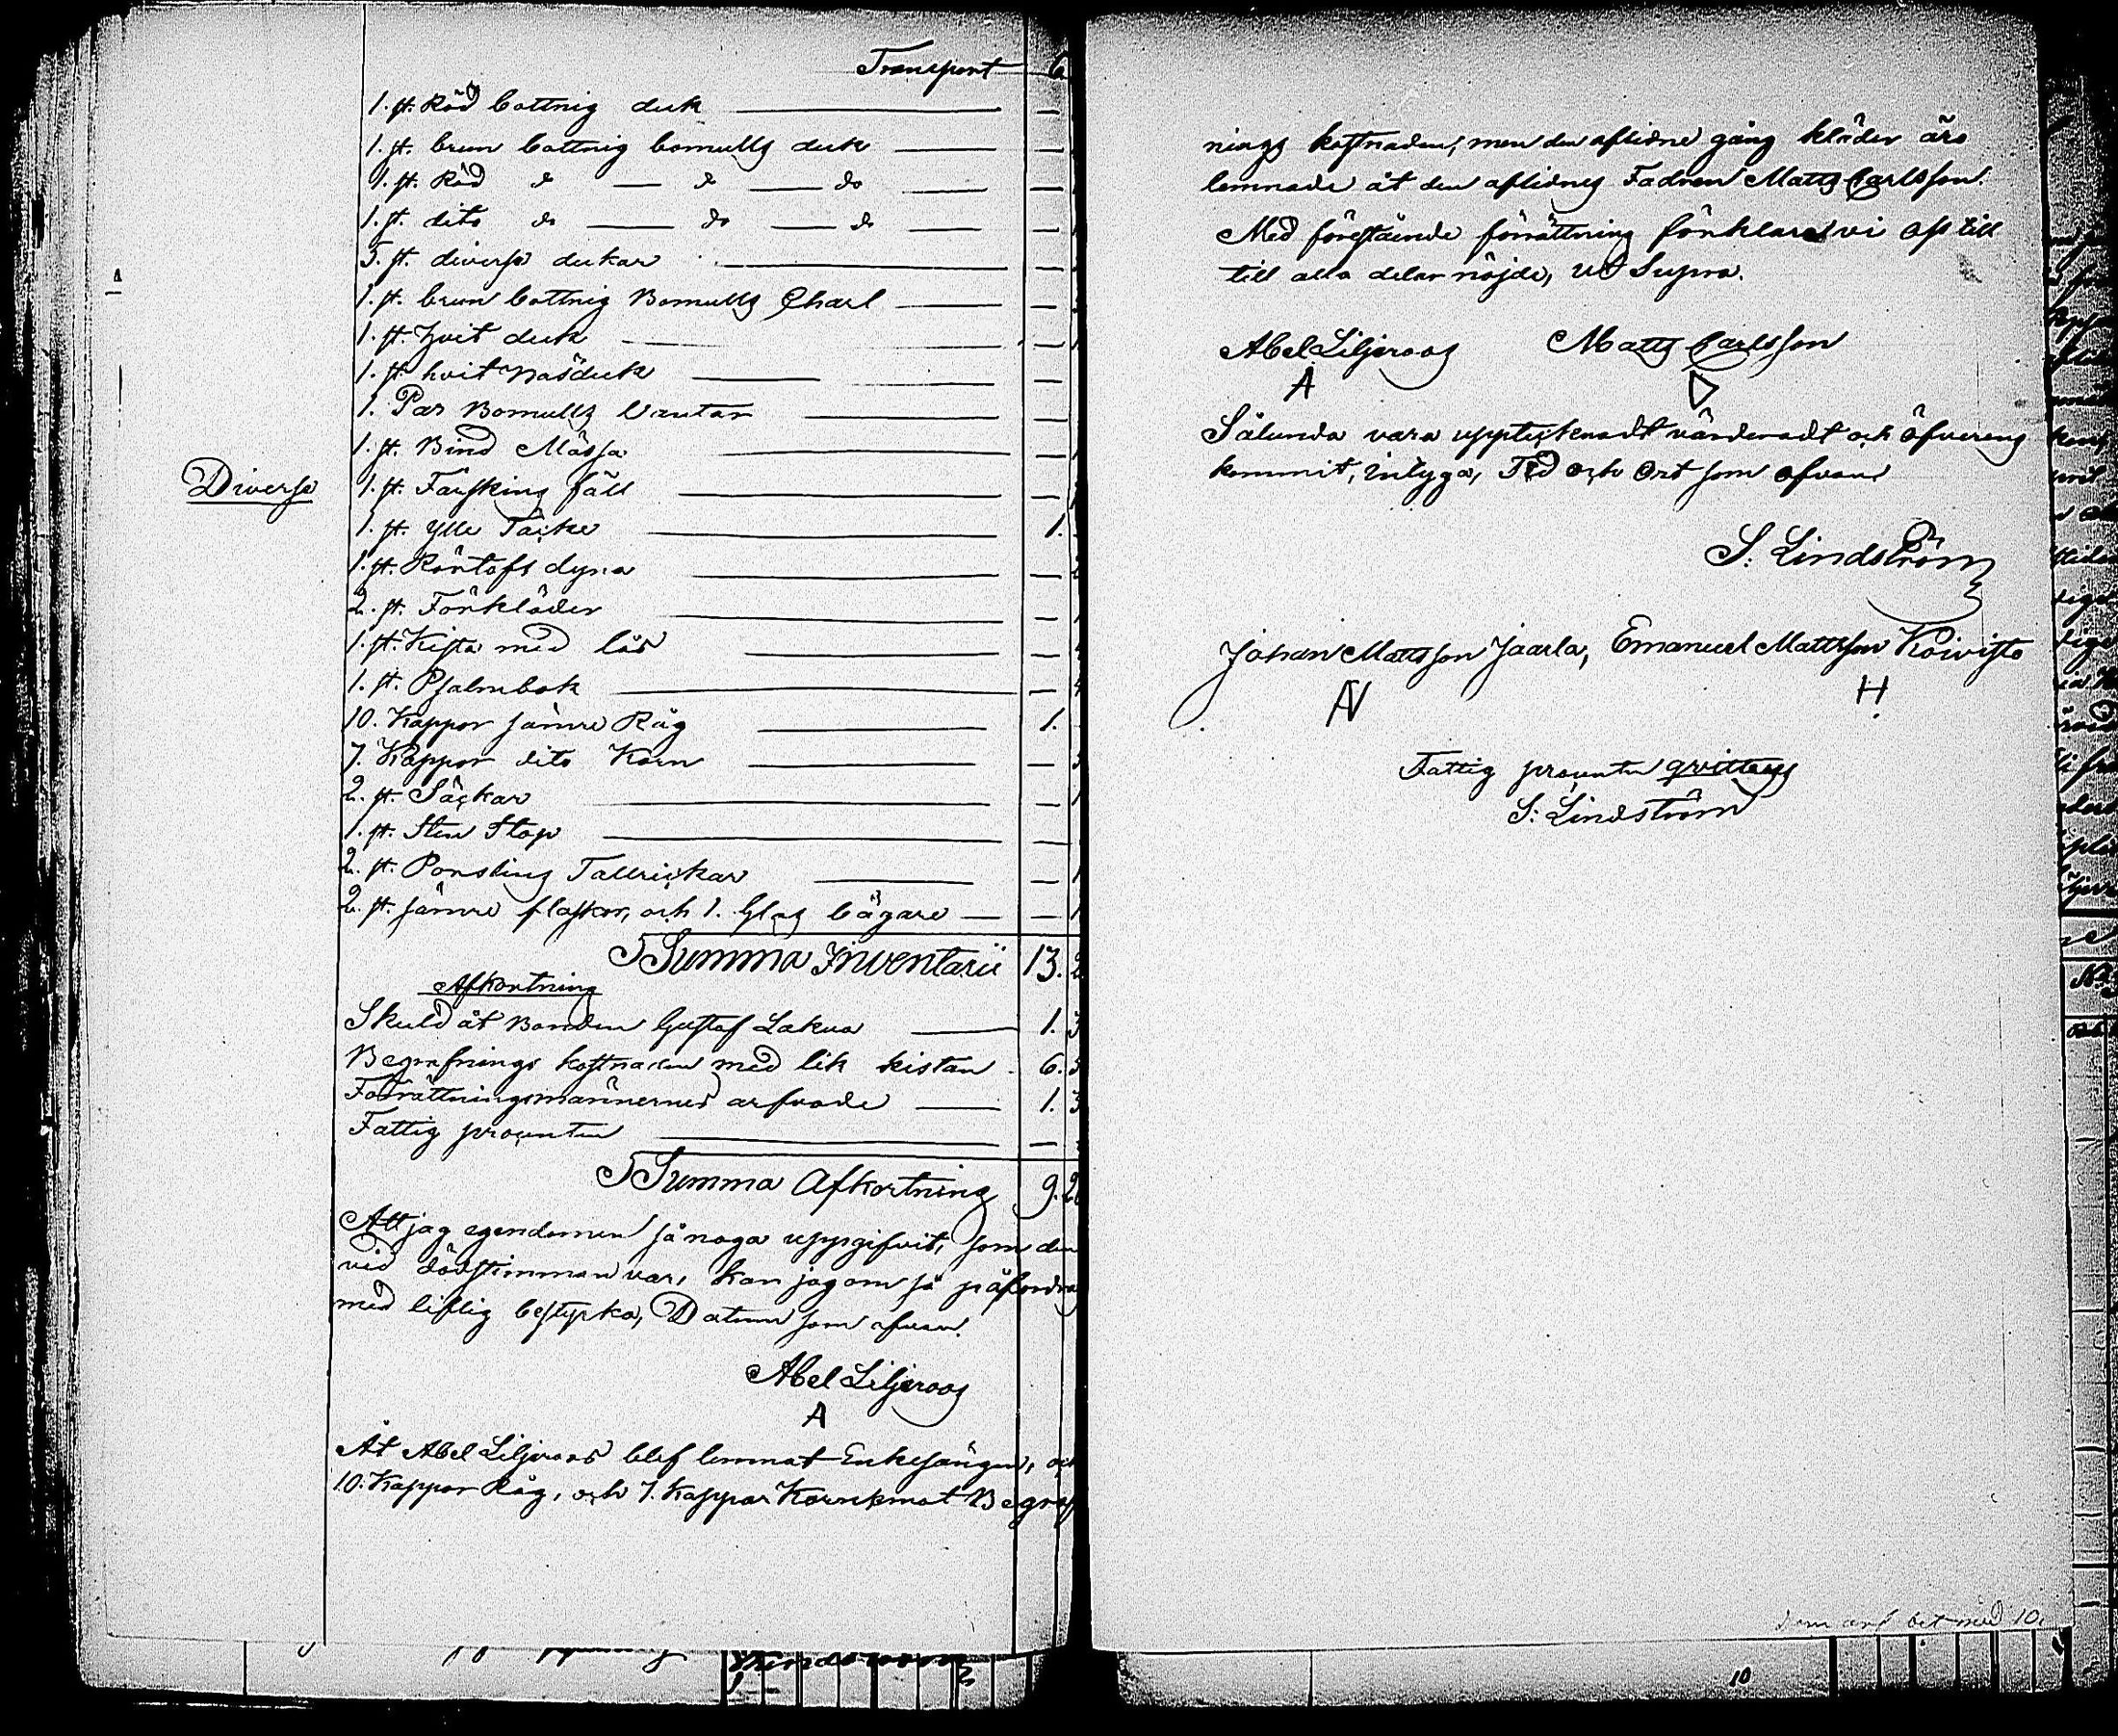 Transport 6
1. st. Röd bottnig duk — —
1. st. brun bottnig bomulls duk — —
1. st. Röd do — do — do — —
1. st. dito do — do — do — —
5. st. diverse dukar — —
1. st. brun bottnig Bomulls Charl — —
1. st. hvit duk — —
1. st. hvit Näsduk — —
1. Par Bomulls Vantar — —
1. st. Bind Mössa — —
Diverse 1. st. Fårskins fäll — —
1. st. Ylle Täcke — 1.
1. st. dyna — —
2. st. Förkläder — —
1. st. Kista med lås — —
1. st. Psalmbok — —
10. Kappor sämre Råg — 1.
7. Kappor dito Korn — —
2. st. Säckar — —
1. st. Sten Stop — —
2. st. Porsling Tallrickar — —
2. st. sämre flaskor, och 1. Glas bägare — —
Summa Inventarii 13. 2
Afkortning
Skuld åt Bonden Gustaf Lakua — 1. 3
Begrafnings kostnaden med lik kistan 6. 5
Förrättningsmännernes arfvode — 1. 3
Fattig procenten — —
Summa Afkortning 9. 2
Att jag egendomen så noga uppgifvit, som den
vid dödstimman var, kan jag om så påfordras
med liflig bestyrka, Datum som ofvan.
Abel Liljeroos
A
Åt Abel Liljeroos blef lemnat Enkesängen, och
10. Kappor Råg, och 7. Kappar Korn emot Begraf
nings kostnaden, men den aflidne gång kläder äro
lemnade åt den aflidnes Fadren Matts Carlsson.
Med förestående förrättning förklara vi oss till
till alla delar nöjde, ut Supra.
Abel Liljeroos Matts Carlsson
A
Sålunda vara upptecknadt värderadt och öfverens
kommit, intyga, Tid och Ort som ofvan
S. Lindström
Johan Mattsson Jaarla, Emanuel Mattsson Koivisto
H
Fattig procenten qvitteras
S. Lindström
10